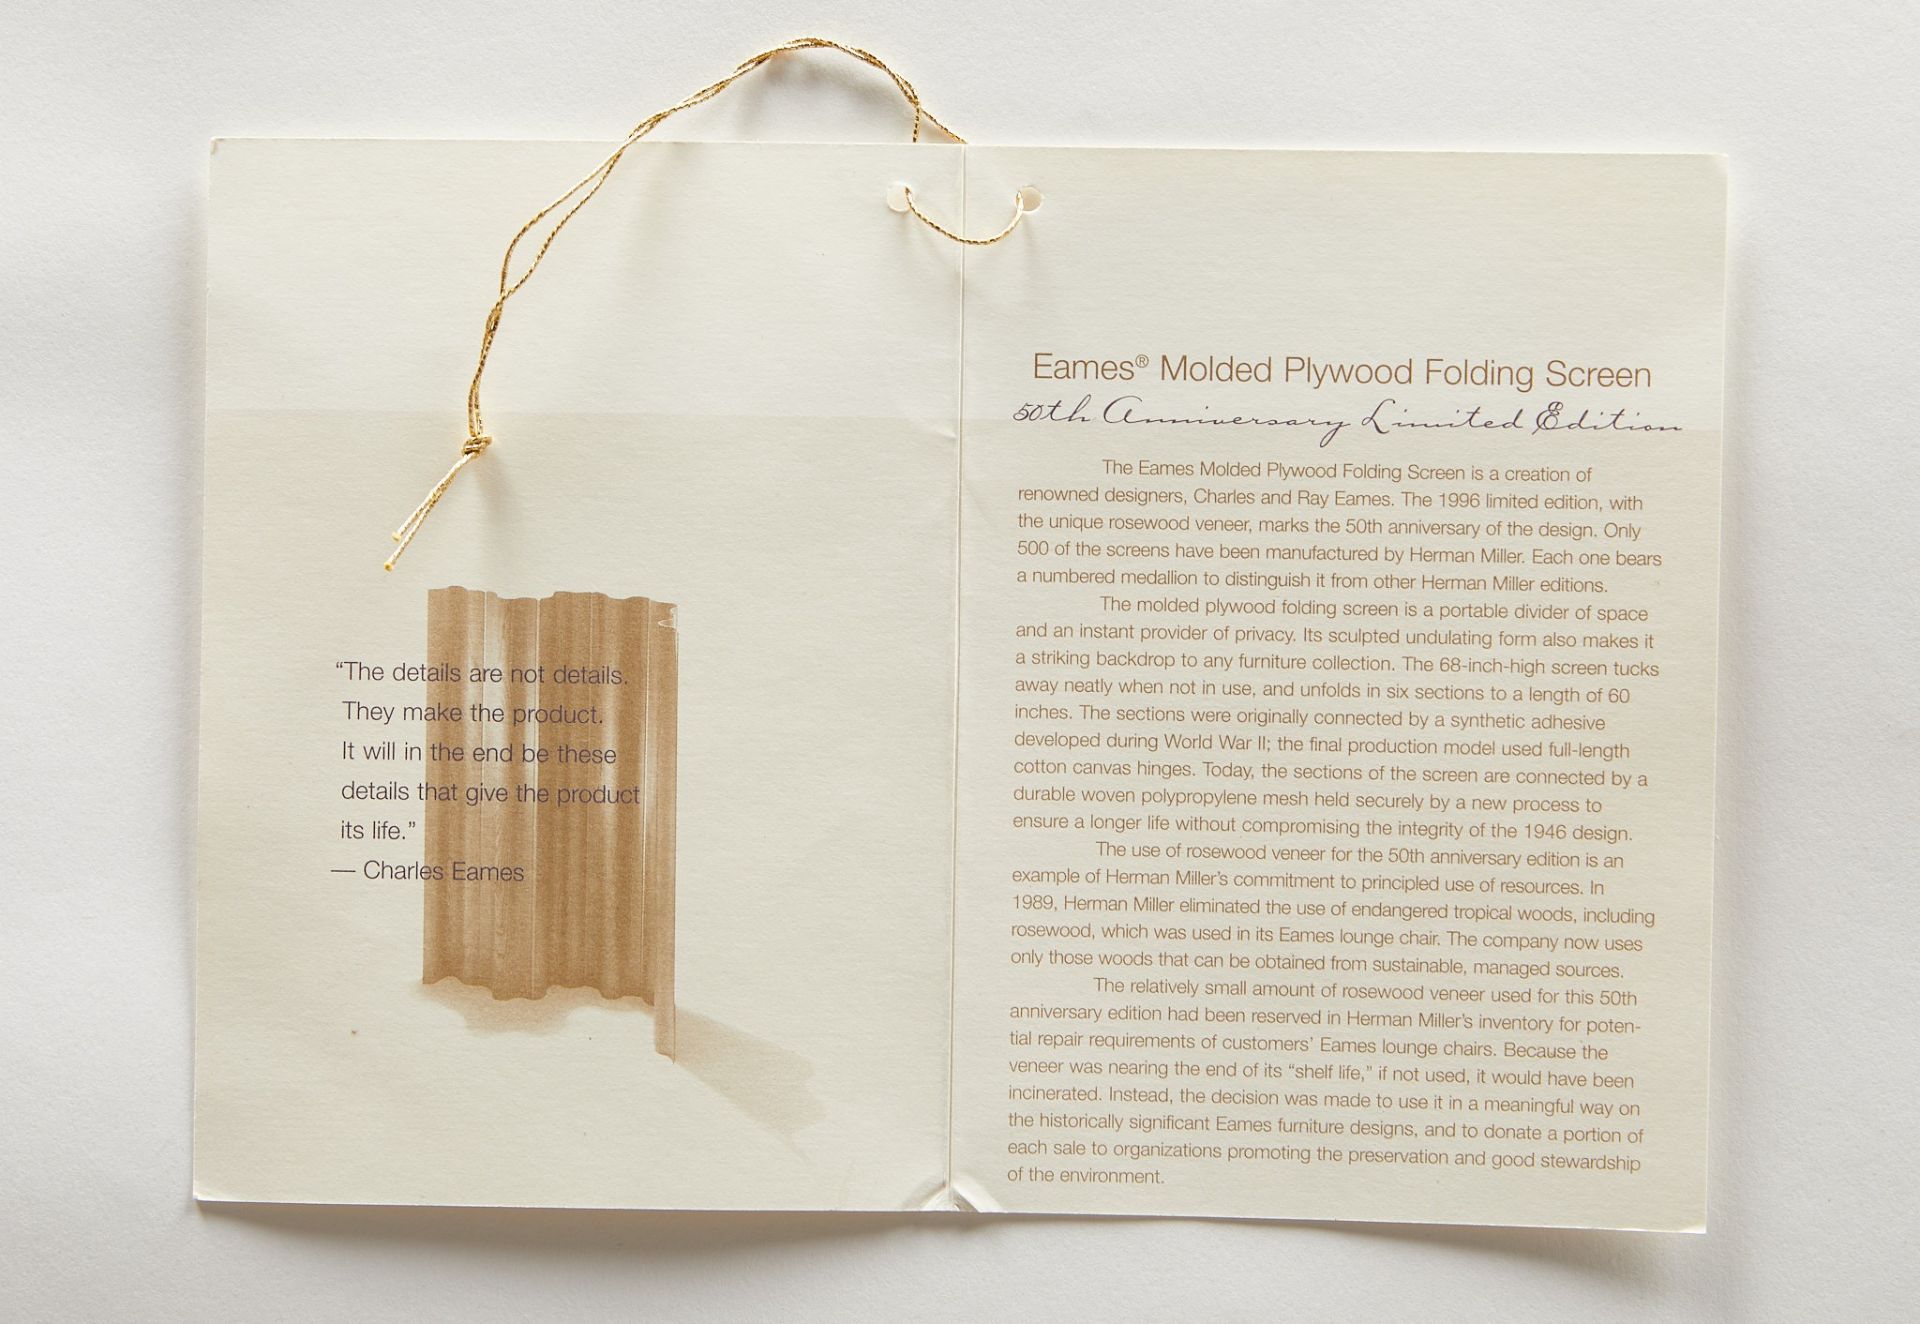 “The details are not details.
They make the product.
It will in the end be these
details that give the product
its life.”
— Charles Eames
Eames® Molded Plywood Folding Screen
50th Anniversary Limited Edition
The Eames Molded Plywood Folding Screen is a creation of
renowned designers, Charles and Ray Eames. The 1996 limited edition, with
the unique rosewood veneer, marks the 50th anniversary of the design. Only
500 of the screens have been manufactured by Herman Miller. Each one bears
a numbered medallion to distinguish it from other Herman Miller editions.
The molded plywood folding screen is a portable divider of space
and an instant provider of privacy. Its sculpted undulating form also makes it
a striking backdrop to any furniture collection. The 68-inch-high screen tucks
away neatly when not in use, and unfolds in six sections to a length of 60
inches. The sections were originally connected by a synthetic adhesive
developed during World War II; the final production model used full-length
cotton canvas hinges. Today, the sections of the screen are connected by a
durable woven polypropylene mesh held securely by a new process to
ensure a longer life without compromising the integrity of the 1946 design.
The use of rosewood veneer for the 50th anniversary edition is an
example of Herman Miller’s commitment to principled use of resources. In
1989, Herman Miller eliminated the use of endangered tropical woods, including
rosewood, which was used in its Eames lounge chair. The company now uses
only those woods that can be obtained from sustainable, managed sources.
The relatively small amount of rosewood veneer used for this 50th
anniversary edition had been reserved in Herman Miller’s inventory for poten-
tial repair requirements of customers’ Eames lounge chairs. Because the
veneer was nearing the end of its “shelf life,” if not used, it would have been
incinerated. Instead, the decision was made to use it in a meaningful way on
the historically significant Eames furniture designs, and to donate a portion of
each sale to organizations promoting the preservation and good stewardship
of the environment.